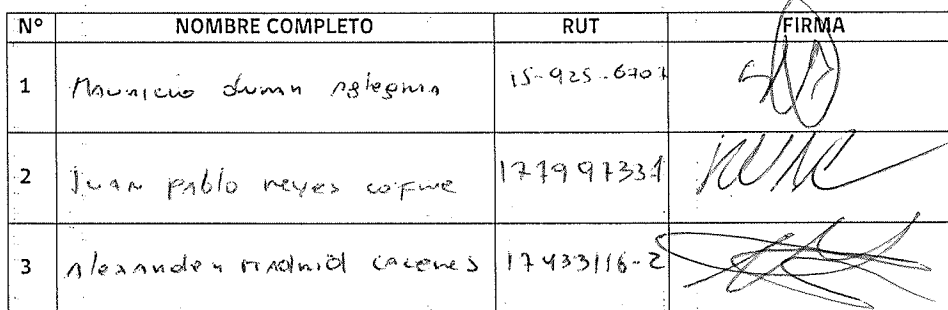 N° NOMBRE COMPLETO RUT FIRMA
1 Mauricio 15-925-6707
2 Juan pablo reyes 177997331
3 Alexander Madrid caceres 17433116-2